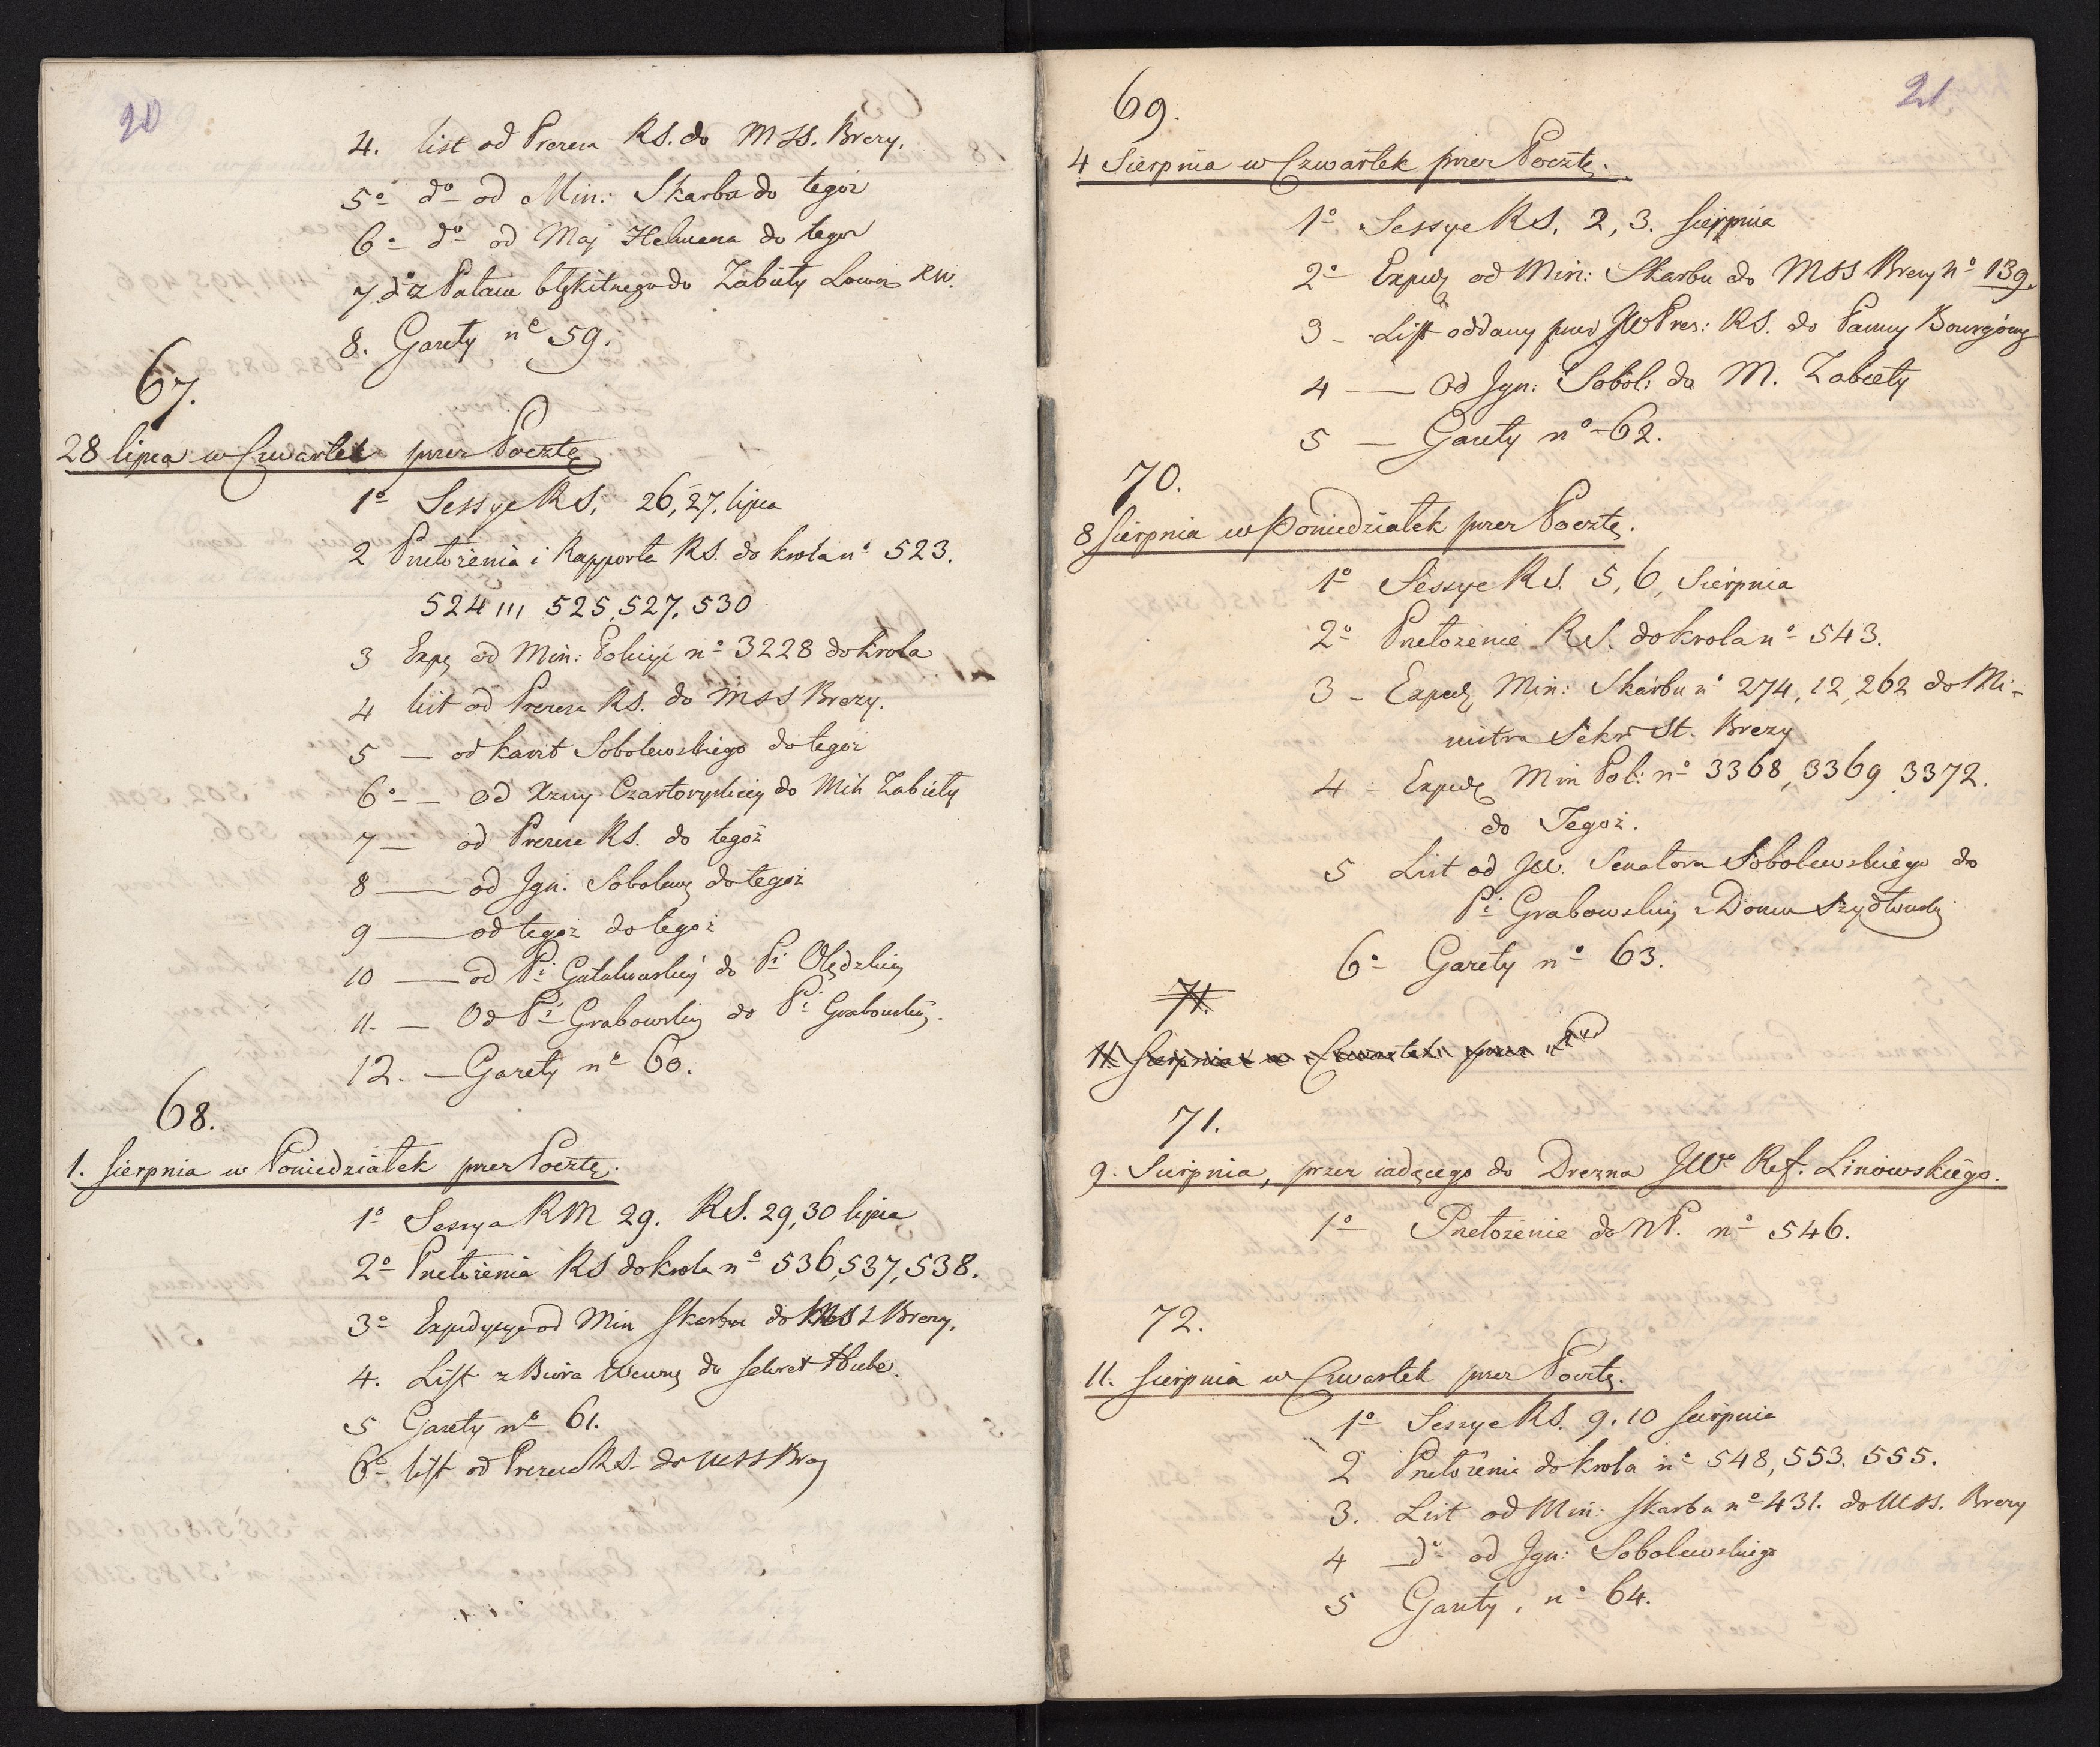 20
4. list od Prezesa RS. do MSS. Brezy.
5º dº od Min: Skarbu do tegoż
6º dº od Maj Hebuena do tegoż
7 dº z Pałacu błękitnego do Zabiełły Łowcz RW.
8. Gazety nº 59.
67.
28 lipca w Czwartek przez Pocztę
1º Sessye RS. 26, 27. lipca
2 Przełożenia i Rapporta RS. do krola nº 523.
524 III 525, 527, 530
3 Expę od Min: Policyi nº 3228 do krola
4 list od Prezesa RS. do MSS Brezy.
5 — od kaszt Sobolewskiego do tegoż
6º — od Xzny Czartoryskiey do Mich Zabiełły
7 — od Prezesa RS. do tegoż
8 — od Ign. Sobolews do tegoż
9 — od tegoż do tegoż
10 — od Pi do Pi Olędzkiey
11. — Od Pi Grabowskiey do Pi Grabowskiey.
12. — Gazety nº 60.
68.
1. Sierpnia w Poniedziałek przez Pocztę.
1º Sessya RM 29. RS. 29, 30 lipca
2º Przełożenia RS do krola nº 536, 537, 538.
3º Expedycye od Min Skarbu do MSS Brezy.
4. List z Biura Wewnę do sekret Hube.
5 Gazety nº 61.
6º list od Prezesa RS. do MSS Brezy
21
69.
4 Sierpnia w Czwartek przez Pocztę.
1º Sessye RS. 2, 3. sierpnia
2º Expedy od Min: Skarbu do MSS Brezy nº 139.
3 - List oddany przez JWPrez: RS. do Panny Bourgoing
4 - — Od Ign: Sobol: do M. Zabiełły
5 — Gazety nº 62.
70.
8 Sierpnia w Poniedziałek przez Pocztę.
1º Sessye RS. 5, 6, Sierpnia
2º Przełożenie RS. do krola nº 543.
3 - Exped Min: Skarbu nº 274, 12, 262 do Mi-
nistra Sekr St. Brezy
4 - Exped Min Pol: nº 3368, 3369 3372.
do Tegoż.
5 List od JW. Senatora Sobolewskiego do
Pi Grabowskiey z Domu Szydłowskiey
6º Gazety nº 63.
71.
11. Sierpnia w Czwartek przez
71.
9. Sierpnia, przez iadącego do Drezna JWº Ref. Linowskiego.
1º Przełożenie do NP. nº 546.
72.
11. Sierpnia w Czwartek przez Pocztę.
1º Sessye RS. 9, 10 sierpnia
2 Przełożenie do krola nº 548, 553. 555.
3. List od Min: Skarbu nº 431. do MSS. Brezy
4 — dº od Ign: Sobolewskiego
5 Gazety, nº 64.